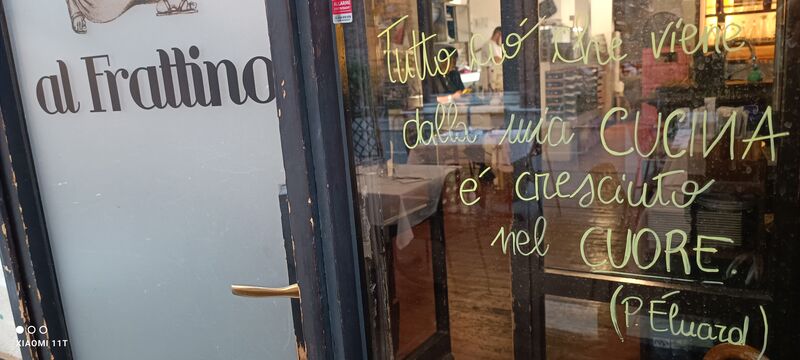 al Frattino
Tutto ció che viene
dalla mia CUCINA
é cresciuto
nel CUORE.
(P. Éluard)
XIAOMI 11T